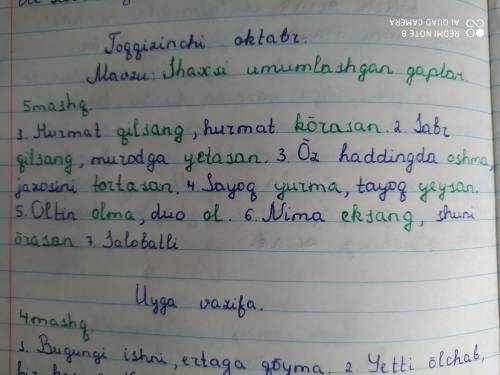 REDMI NOTE 8
AI QUAD CAMERA
Toqqizinchi oktabr.
Mavzu: Shaxsi umumlashgan gaplar.
5mashq
1. Hurmat qilsang, hurmat kõrasan. 2. Sabr
qilsang, murodga yetasan. 3. Õz haddingda oshma,
jazosini tortasan. 4. Sayoq yurma, tayoq yeysan.
5. Oltin olma, duo ol. 6. Nima eksang, shuni
õrasan 7. Salobatli
Uyga vazifa.
4mashq
1. Bugungi ishni, ertaga qõyma. 2. Yetti õlchab,
bir